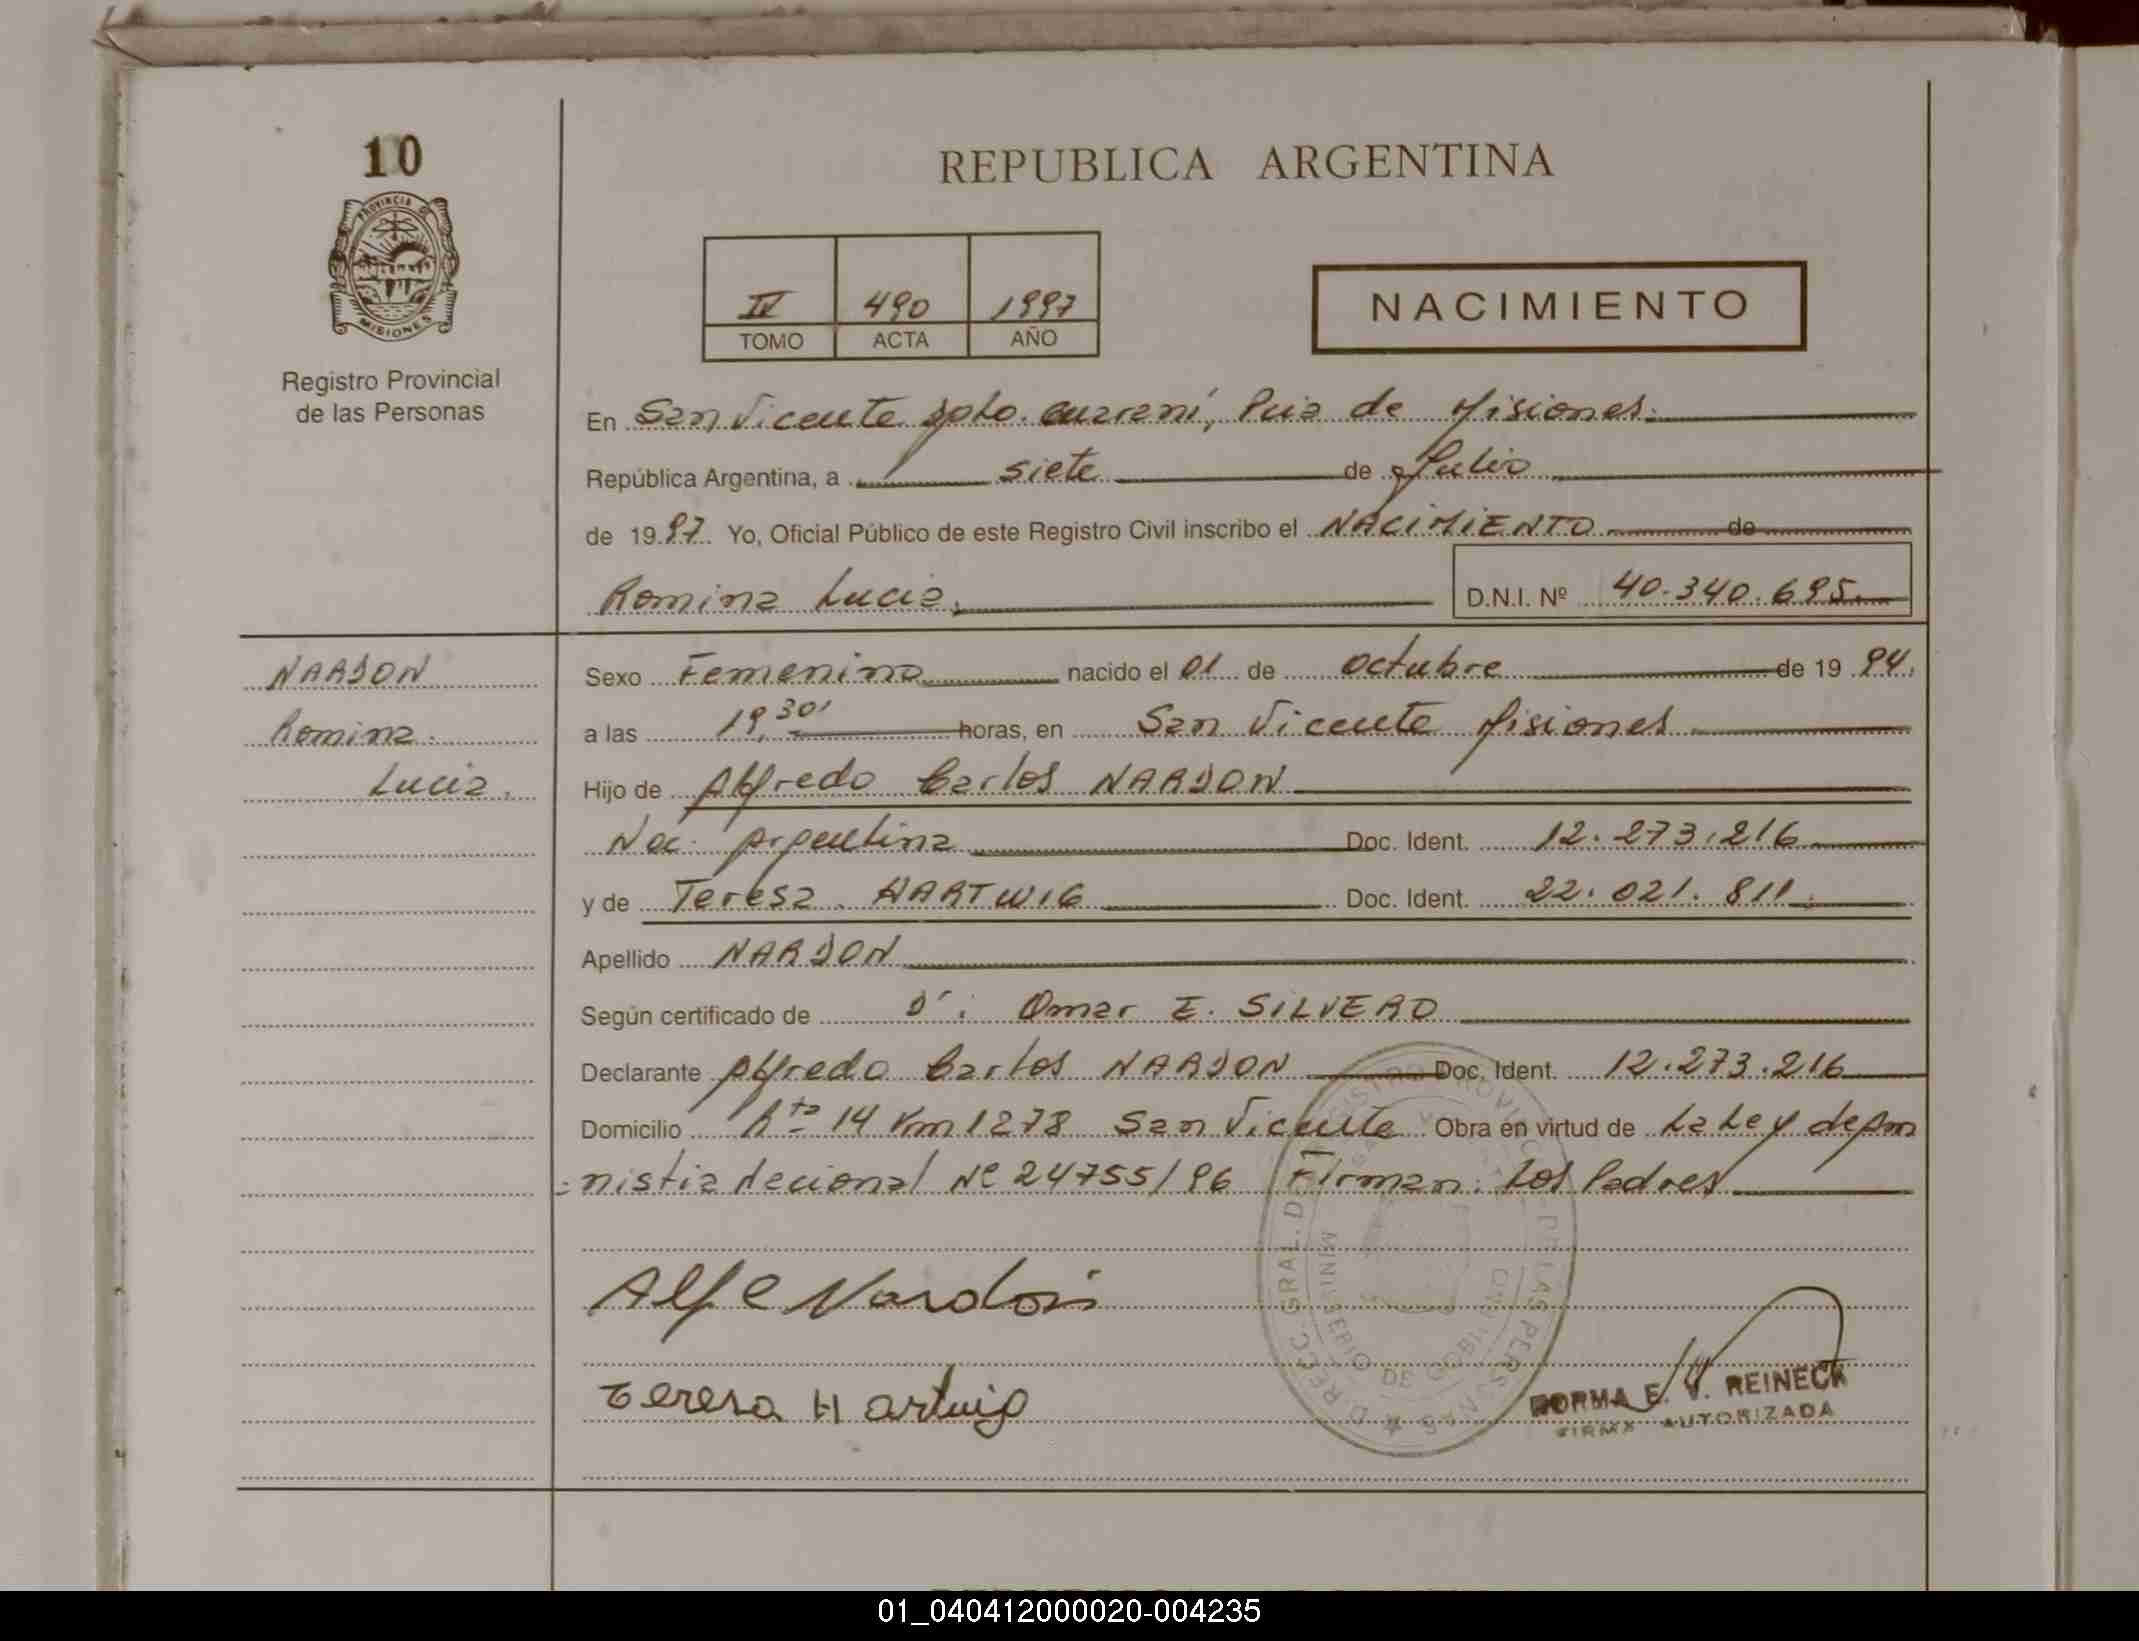 10
PROVINCIA DE
MISIONES
Registro Provincial
de las Personas
REPUBLICA ARGENTINA
IV 490 1997
TOMO ACTA AÑO
NACIMIENTO
En San Vicente Dpto. Guaraní, Pcia de Misiones.
República Argentina, a siete de Julio
de 1997. Yo, Oficial Público de este Registro Civil inscribo el NACIMIENTO de
Romina Lucia. D.N.I. Nº 40.340.695.
NARDON
Romina
Lucia.
Sexo Femenino nacido el 01 de octubre de 1994.
a las 19,30' horas, en San Vicente Misiones
Hijo de Alfredo Carlos NARDON
Nac. Argentina Doc. Ident. 12.273.216
y de Teresa HARTWIG Doc. Ident. 22.021.811.
Apellido NARDON
Según certificado de Dr. Omar E. SILVERO
Declarante Alfredo Carlos NARDON Doc. Ident. 12.273.216
Domicilio Rta 14 Km 1278 San Vicente Obra en virtud de La Ley de Am
=nistia Nacional Nº 24755/96 Firman: Los Padres
Alf C Nardon
Teresa Hartwig
D REC. GRAL. DE REGISTRO PROVINCIAL DE LAS PERSONAS
MINISTERIO DE GOBIERNO
NORMA E. V. REINECK
FIRMA AUTORIZADA
01_040412000020-004235